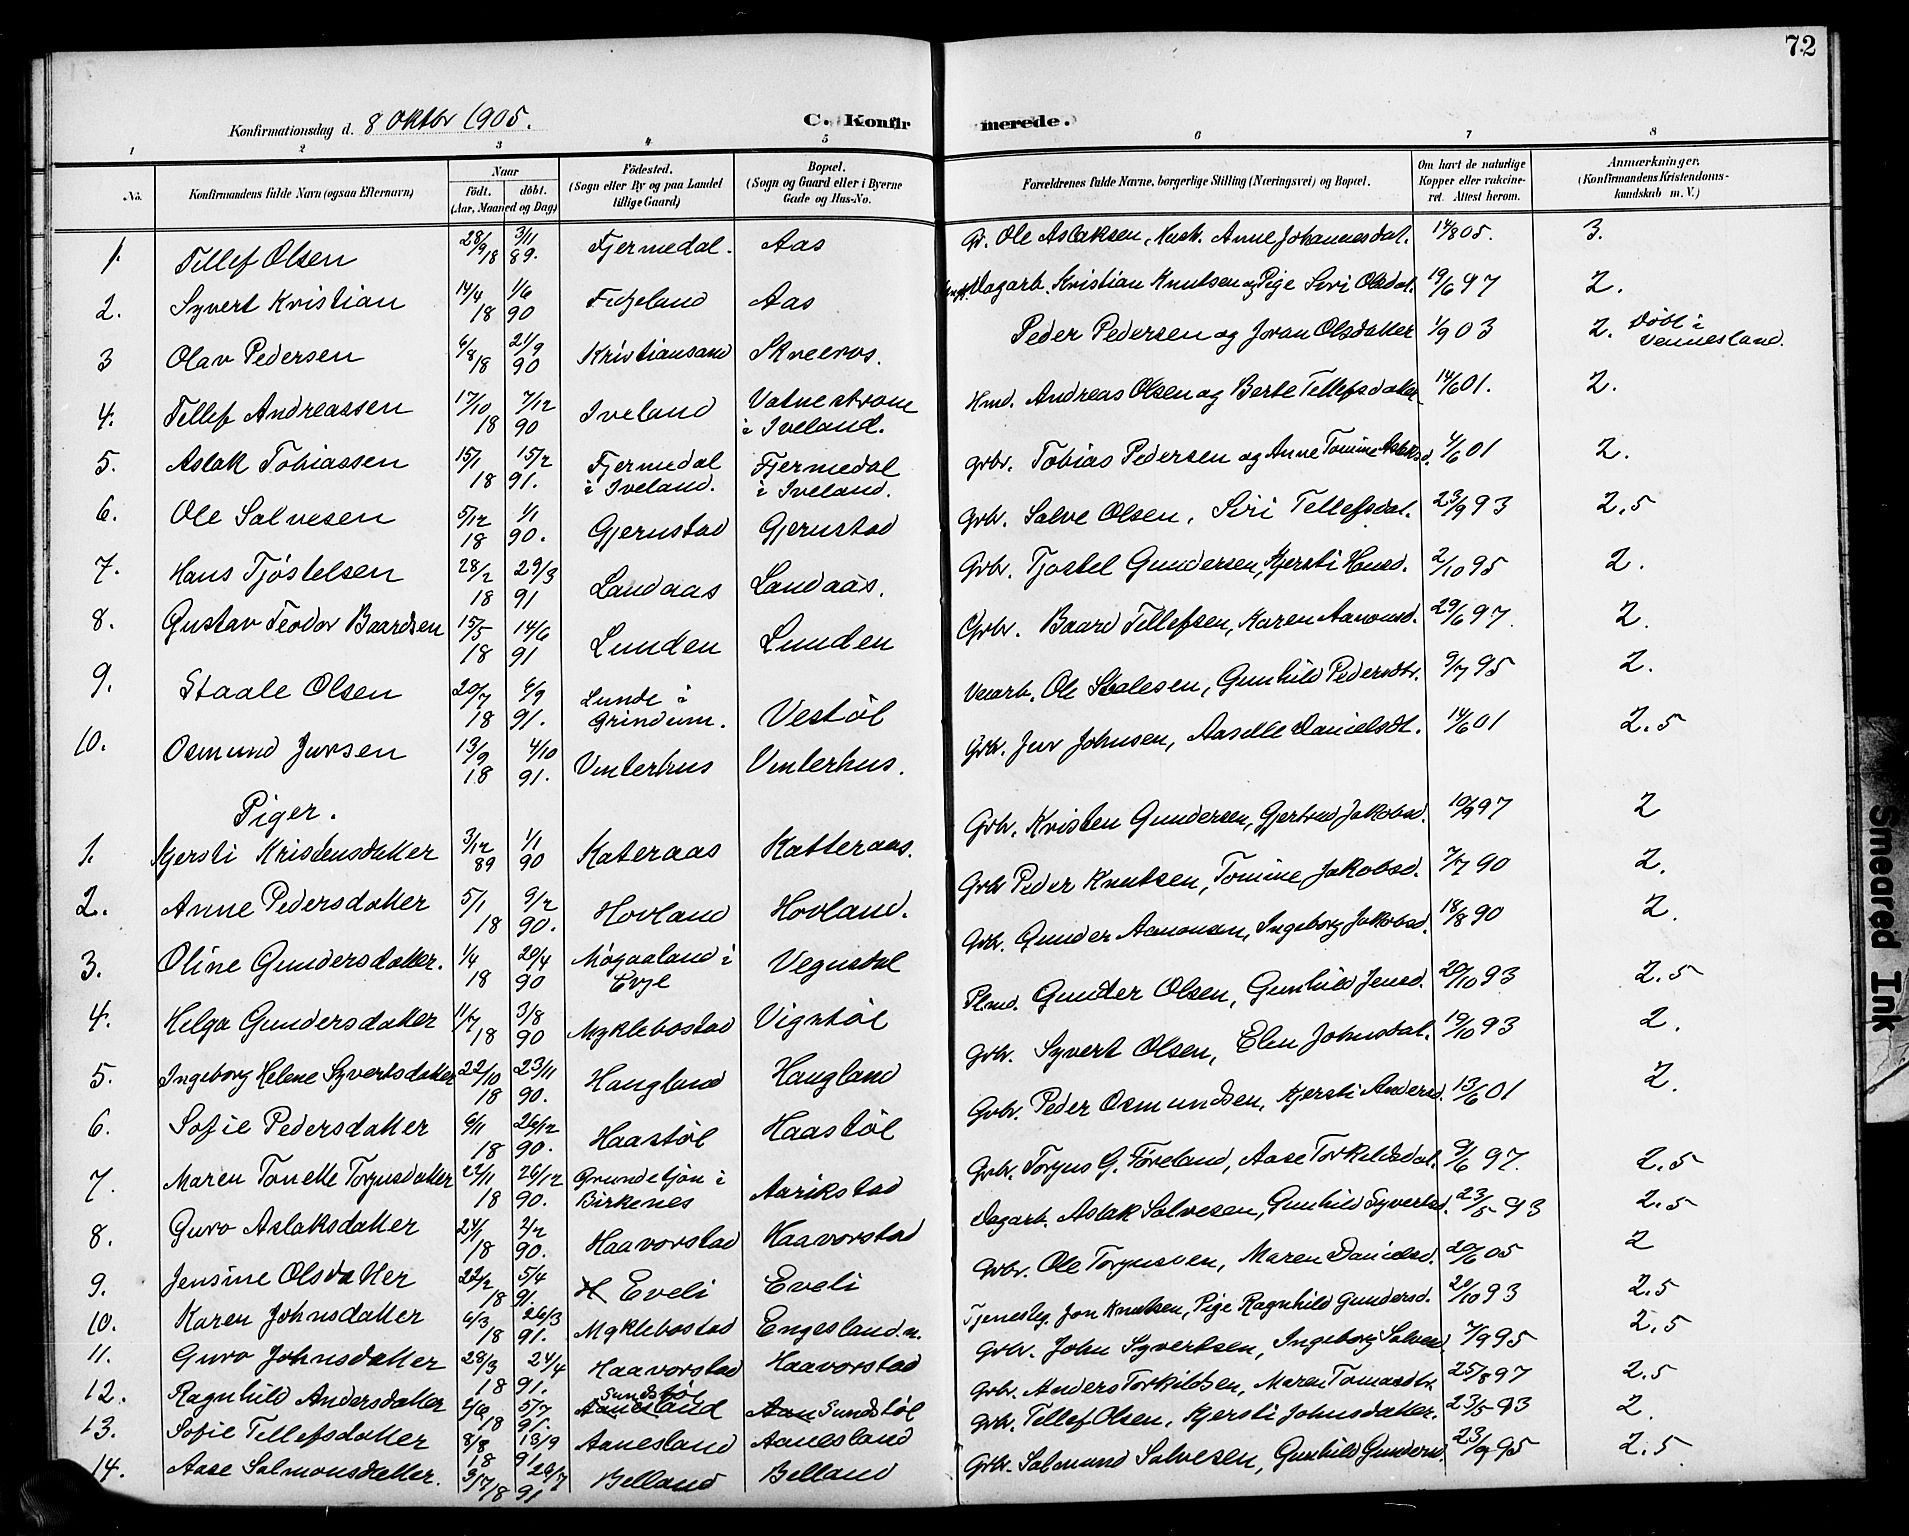 72
Konfirmationsdag d. 8 Oktbr 1905.
C. Konfirmerede.
1 2 3 4 5 6 7 8
No. Konfirmandens fulde Navn (ogsaa Efternavn) Naar födt. döbt. (Aar, Maaned og Dag) Födested. (Sogn eller By og paa Landet tillige Gaard) Bopæl. (Sogn og Gaard eller i Byerne Gade og Hus-No. Forældrenes fulde Navne, borgerlige Stilling (Næringsvei) og Bopæl. Om havt de naturlige Kopper eller vaksineret. Attest herom. Anmærkninger, (Konfirmandens Kristendomskundskab m. V.)
1. Tellef Olsen 28/9 18 3/11 89. Fjermedal. Aas Gr. Ole Aslaksen, Hust. Anne Johannesdat. 14/8 05. 3.
2. Syvert Kristian 14/4 18 1/6 90 Fidjeland Aas Ungk. Dagarb. Kristian Knutsen og Pige Siri Olsdat. 19/6 97 2.
3 Olav Pedersen 6/8 18 21/9 90 Kristiansand Skreeros. Peder Pedersen og Joran Olsdatter 1/9 03 2. Döbt i Vennesland.
4. Tellef Andreassen 17/10 18 7/12 90 Iveland Vatnestrøm i Iveland. Hmd. Andreas Olsen og Berte Tellefsdatter 14/6 01. 2.
5. Aslak Tobiassen 15/1 18 15/2 91. Fjermedal i Iveland. Fjermedal i Iveland. Grbr. Tobias Pedersen og Anne Tomine Aslaksd. 4/6 01 2.
6. Ole Salvesen 5/12 18 1/1 90. Gjerustad Gjerustad Grbr. Salve Olsen, Siri Tellefsdat. 23/9 93 2.5
7. Hans Tjöstelsen 28/2 18 29/3 91 Landaas Landaas. Grbr. Tjostel Gundersen, Kjersti Hansd. 2/10 95 2.
8. Gustav Teodor Baardsen 15/5 18 14/6 91 Lunden Lunden Grbr. Baard Tellefsen, Karen Aanonsd. 29/6 97. 2.
9. Staale Olsen 20/7 18 6/9 91. Lunde i Grindum. Vestöl Veiarb. Ole Stalesen, Gunhild Pedersdtr. 9/7 95 2.
10. Osmund Jursen 13/9 18 4/10 91. Vinterhus Vinterhus. Grbr. Juv Johnsen, Aaselle Danielsdt. 14/6 01 2.5
Piger.
1. Kjersti Kristensdatter 3/12 89 1/1 90 Kateraas Katteraas. Grbr. Kristen Gundersen, Gjertrud Jakobsd. 10/9 97 2
2. Anne Pedersdatter 5/1 18 9/2 90. Hovland Hovland. Grbr Peder Knutsen, Tomine Jakobsd. 7/7 90 2.
3. Oline Gundersdatter. 1/4 18 20/4 90 Mögaaland i Evje Vegustøl Grbr. Gunder Aanonsen, Ingeborg Jakobsd. 18/8 90 2.
4. Helga Gundersdatter 11/7 18 3/8 90 Myklebostad Vigstöl Plmd. Gunder Olsen, Gunhild Jensd. 20/10 93 2.5
5. Ingeborg Helene Syvertsdatter 22/10 18 23/11 90. Haugland Haugland Grbr. Syvert Olsen, Elen Johnsdat. 19/10 93 2.
6. Sofie Pedersdatter 9/11 18 26/12 90. Haastöl Haastöl Grbr. Peder Osmundsen, Kjersti Andersd. 13/6 01 2.
7. Maren Tonette Torjusdatter 22/11 18 26/12 90. Grundetjön i Birkenes Aarikstad Grbr. Torjus G. Föreland, Aase Torkildsdat. 9/6 97. 2.5
8. Guro Aslaksdatter 24/1 18 2/2 90. Haavorstad Haavorstad Dagarb. Aslak Salvesen, Gunhild Syvertsd. 23/5 93 2.5
9. Jensine Olsdatter 22/2 18 5/4 91. Eveli Eveli Grbr. Ole Torjussen, Maren Danielsd. 20/6 05 2
10. Karen Johnsdatter 6/3 18 26/3 91. Myklebostad Engesland. Tjenestg. Jon Knutsen, Pige Ragnhild Gundersd. 20/10 93 2.5
11. Guro Johnsdatter 28/3 18 24/4 91. Haavorstad Haavorstad Grbr. John Syvertsen, Ingeborg Salvesd. 7/9 95 2.5
12. Ragnhild Andersdatter 2/6 18 5/7 91. Sundstöl Aanesland Aan Sundstöl Grbr. Anders Torkildsen, Maren Tomasdtr. 25/8 97 2.5
13. Sofie Tellefsdatter 8/8 18 13/9 91. Aanesland Aanesland Grbr. Tellef Olsen, Kjersti Johnsdatter. 23/5 93 2.
14. Aase Salmonsdatter. 3/7 18 20/7 91 Belland Belland Grbr. Salmund Salvesen, Gunhild Gundersd. 23/9 95 2.5
Smeared Ink